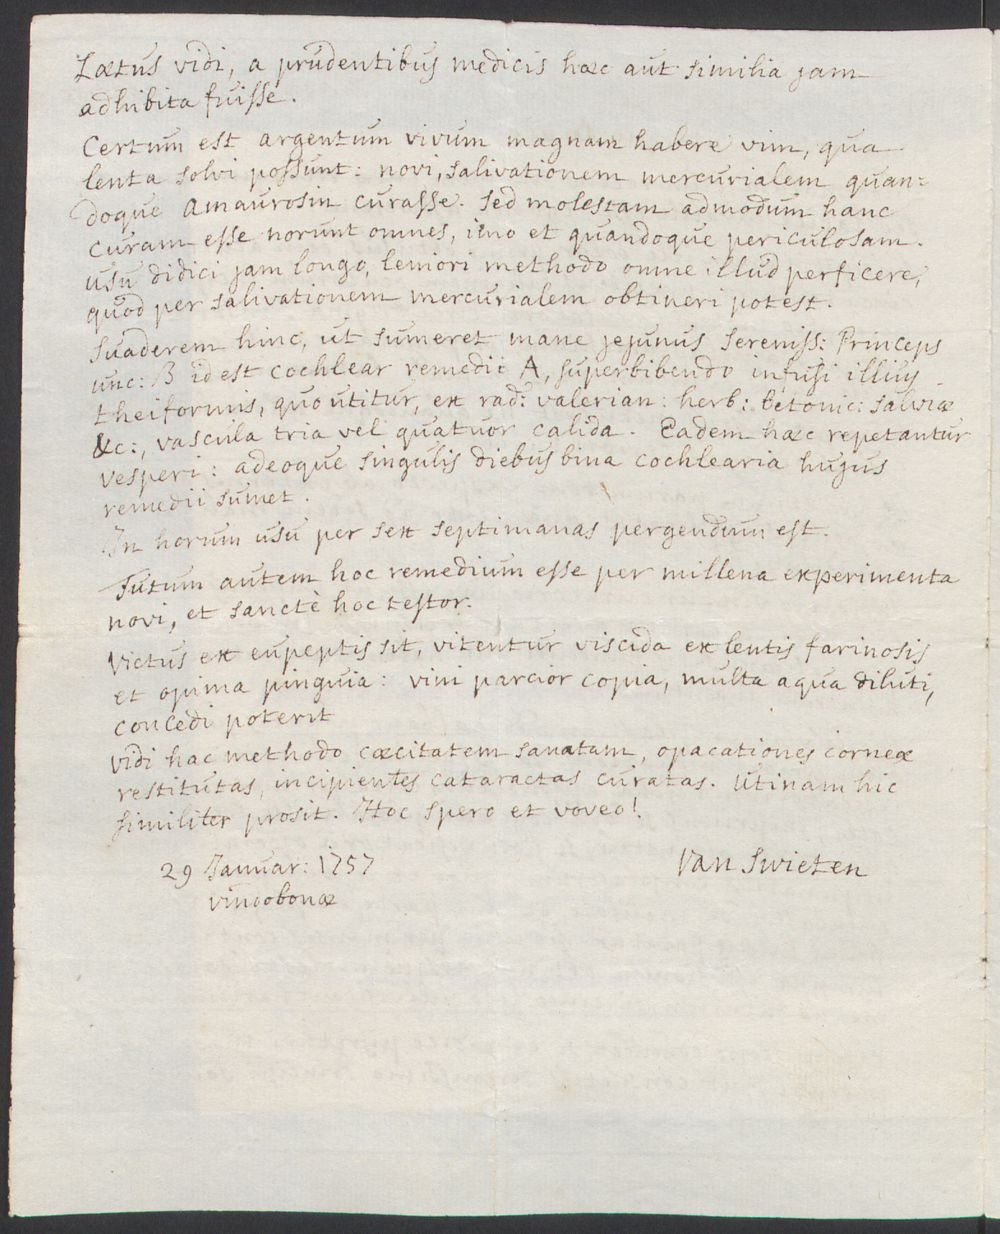 Lætus vidi, a prudentibus medicis hæc aut similia jam
adhibita fuisse.
Certum est argentum vivum magnam habere vim, qua
lenta solvi possunt: novi, salivationem mercurialem quan=
doque Amaurosin curasse. sed molestam admodum hanc
curam esse norunt omnes, imo et quandoque periculosam.
usu didici jam longo, leniori methodo omne illud perficere,
quod per salivationem mercurialem obtineri potest.
suaderem hinc, ut sumeret mane jejunus sereniss: Princeps
unc: ß id est cochlear remedii A, superbibendo infusi illius
theiformis, quo utitur, ex rad: valerian: herb: betonic: salviæ
&c:, vascula tria vel quatuor calida. Eadem hæc repetantur
vesperi: adeoque singulis diebus bina cochlearia hujus
remedii sumet.
In horum usu per sex septimanas pergendum est.
Tutum autem hoc remedium esse per millena experimenta
novi, et sanctè hoc testor.
Victus ex eupeptis sit, vitentur viscida ex lentis farinosis
et opima pinguia: vini parcior copia, multa aqua diluti,
concedi poterit
vidi hac methodo cæcitatem sanatam, opacationes corneæ
restitutas, incipientes cataractas curatas. Utinam hic
similiter prosit. Hoc spero et voveo!
29 Januar: 1757 Van Swieten
vindobonæ